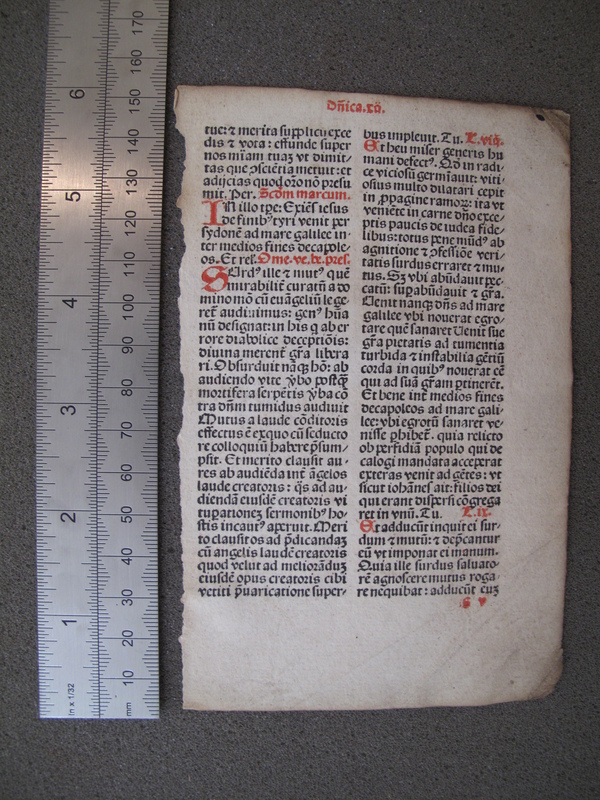 Dñica.xii.
tue: ⁊ merita suppłicu exce
dis ⁊ vota: effunde super
nos mĩam tuaȝ vt dimit⸗
tas que ꝯsciẽtia metuit: et
adijcias quod orõ nõ presu
mit. Per. Scdm marcum.
IN illo tꝑe: Exiẽs iesus
de finibꝰ tyri venit per
sydonẽ ad mare galilee in⸗
ter medios fines decapole⸗
os. Et rel. Ome. ve. be. pres.
SUrdꝰ ille ⁊ mutꝰ quẽ
mirabilit̃ curatũ a do
mino mõ cũ euãgeliũ lege
ret̃ audiuimus: genꝰ hũa
nũ designat: in his q̃ ab er
rore diabolice deceptiõis:
diuina merent̃ gr̃a libera
ri. Obsurduit nãqȝ hõ: ab
audiendo vite ꝟbo postqȝ
mortifera serpẽtis ꝟba cõ
tra dñm tumidus audiuit
Mutus a laude cõditoris
effectus ẽ ex quo cũ seducto
re colloquiũ habere p̃sum⸗
psit. Et merito clausit au⸗
res ab audiẽda int̃ ãgelos
laude creatoris: q̃s ad au⸗
diendã eiusdẽ creatoris vi
tuꝑationeȝ sermonibꝰ ho⸗
stis incautꝰ aperuit. Meri
to clausit os ad p̃dicandaȝ
cũ angelis laudẽ creatoris
quod velut ad melioraduȝ
eiusdẽ opus creatoris cibi
vetiti p̃uaricatione super⸗
bus impleuit. Tu. L. viij.
Et heu miser generis hu
mani defectꝰ. Qd̃ in radi⸗
ce viciosũ germĩauit: viti⸗
osius multo dilatari cepit
in ꝓpagine ramoȝ: ita vt
veniẽte in carne dño exce⸗
ptis paucis de iudea fide⸗
libus: totus pene mũdꝰ ab
agnitione ⁊ ꝯfessiõe veri⸗
tatis surdus erraret ⁊ mu⸗
tus. Sȝ vbi abũdauit pec⸗
catũ: supabũdauit ⁊ gr̃a.
Uenit nanqȝ dñs ad mare
galilee vbi nouerat egro⸗
tare quẽ sanaret Uenit sue
gr̃a pietatis ad tumentia
turbida ⁊ instabilia gẽtiũ
corda in quibꝰ nouerat eẽ
qui ad suã gr̃am ꝑtinerẽt.
Et bene int̃ medios fines
decapoleos ad mare gali⸗
lee: vbi egrotũ sanaret ve⸗
nisse ꝑhibet̃. quia relicto
ob perfidiã populo qui de
calogi mandata acceperat
exteras venit ad gẽtes: vt
sicut iohãnes ait: filios dei
qui erant dispersi cõgrega
ret in vnũ. Tu. L. ix.
Et adducũt inquit ei sur⸗
dum ⁊ mutũ: ⁊ dep̃cantur
eũ vt imponat ei manum.
Quia ille surdus saluato⸗
rẽ agnoscere mutus roga⸗
re nequibat: adducũt euȝ
G v